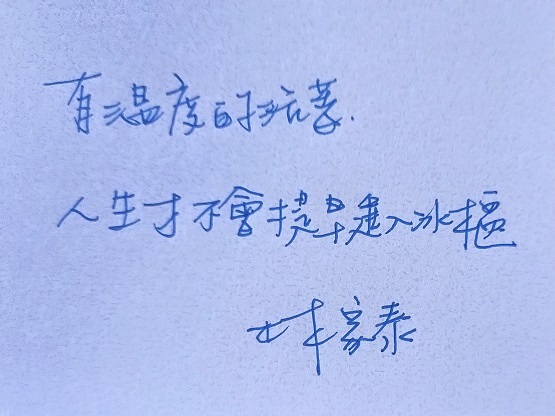 有溫度的活著.
人生才不會提早進入冰櫃
林家泰